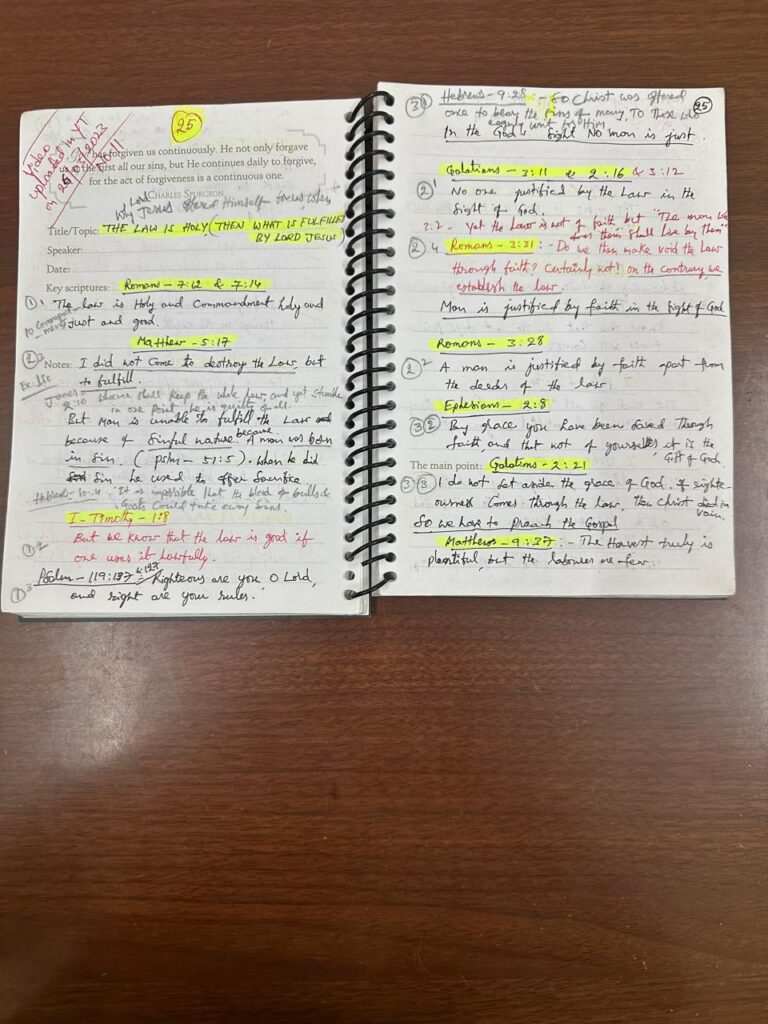 25
Video
uploaded in YT
on 26/05/2023
forgiven us continuously. He not only forgave
us at the first all our sins, but He continues daily to forgive,
for the act of forgiveness is a continuous one.
CHARLES SPURGEON
Why Lord Jesus Himself
Title/Topic: THE LAW IS HOLY (THEN WHAT IS FULFILLED
BY LORD JESUS)
Speaker:
Date:
Key scriptures: Romans - 7:12 & 7:14
① 1 The law is Holy and Commandment holy and
just and good.
Matthew - 5:17
② 2 Notes: I did not Come to destroy the Law, but
to fulfill.
James - 2:10 shall keep the whole law, and yet stumble
in one point, he is guilty of all.
But Man is unable to fulfill the Law
because of Sinful nature because A man was born
in Sin. (Pslm - 51:5). When he did
Sin he used to offer Sacrifice
Hebrews - 10:4 : It is impossible that the blood of bulls &
goats Could take away Sins.
I - Timothy - 1:8
① 2 But we know that the law is good if
one uses it lawfully.
① 3 Psalm - 119:137 - Righteous are you O Lord,
and right are your rules.
25
③ 1 Hebrews - 9:28 :- So Christ was offered
once to bear the sins of many, To Those who
eagerly wait for Him
In the God's Sight No man is just.
Galations - 3:11 & 2:16 & 3:12
② 1 No one justified by the Law in the
Sight of God.
3:12 - Yet the Law is not of faith but "The man who
does them shall live by them"
② 4 Romans - 3:31 : - Do we then make void the Law
through faith? Certainly not! on the contrary, we
establish the law.
Man is justified by faith in the Sight of God
Romans - 3:28
② 2 A man is justified by faith apart from
the deeds of the law.
Ephesians - 2:8
③ 2 By grace you have been Saved Through
faith, and that not of yourselves, it is the
Gift of God.
The main point: Galations - 2:21
③ 3 I do not Set aside the grace of God. If righte-
ousness Comes through the law, Then Christ died in
vain.
So we have to Preach the Gospel
Matthews - 9:37 : - The Harvest truly is
plentiful, but the labourers are few.